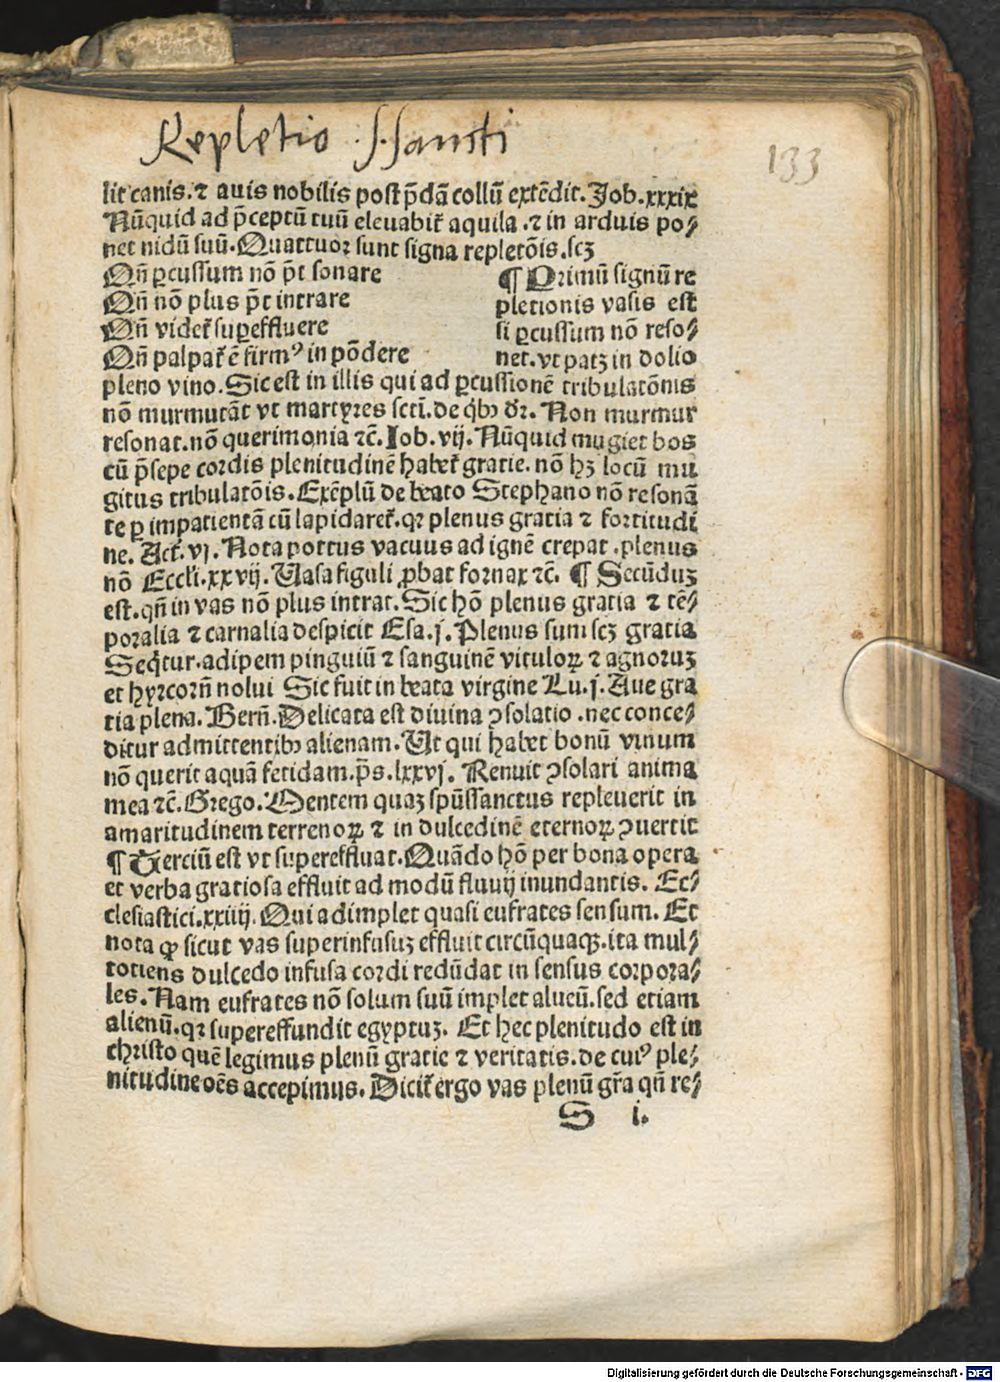 Repletio S. Sancti
133
lit canis. ⁊ auis nobilis post p̄dā collū extēdit. Job. xxxix
Nūquid ad p̄ceptū tuū eleuabiť aquila .⁊ in arduis po⸗
net nidū suū. Quattuoꝛ sunt signa repletōis. scꝫ
Qn̄ ꝑcussum nō p̄t sonare
Qn̄ nō plus p̄t intrare
Qn̄ videť suꝑeffluere
Qn̄ palpať ē firmꝰ in pōdere
¶ Primū signū re
pletionis vasis est
si ꝑcussum nō reso⸗
net. vt patꝫ in dolio
pleno vino. Sic est in illis qui ad ꝑcussionē tribulatōnis
nō murmurāt vt martyres scti. de qͥbꝫ dr̄. Non murmur
resonat. nō querimonia ⁊c̄. Iob. vij. Nūquid mugiet bos
cū p̄sepe cordis plenitudinē habeť gratie. nō hꝫ locū mu
gitus tribulatōis. Exēplū de beato Stephano nō resonā
te ꝑ impatientā cū lapidareť. qꝛ plenus gratia ⁊ fortitudi
ne. Acť. vj. Nota pottus vacuus ad ignē crepat .plenus
nō Eccľi. xxvij. Uasa figuli ꝓbat fornax ⁊c̄. ¶ Secūduꝫ
est. qn̄ in vas nō plus intrat. Sic hō plenus gratia ⁊ tē⸗
poralia ⁊ carnalia despicit Esa. j. Plenus sum scꝫ gratia
Seqͥtur. adipem pinguiū ⁊ sanguinē vituloꝝ ⁊ agnoruꝫ
et hyrcorū nolui Sic fuit in beata virgine Lu. j. Aue gra
tia plena. Bern̄. Delicata est diuina ↄsolatio .nec conce⸗
ditur admittentibꝫ alienam. Ut qui habet bonū vinum
nō querit aquā fetidam. p̄s. lxxvj. Renuit ↄsolari anima
mea ⁊c̄. Grego. Mentem quaꝫ spūssanctus repleuerit in
amaritudinem terrenoꝝ ⁊ in dulcedinē eternoꝝ ↄuertit
¶ Terciū est vt supereffluat. Quādo hō per bona opera
et verba gratiosa effluit ad modū fluuij inundantis. Ec⸗
clesiastici. xxiiij. Qui adimplet quasi eufrates sensum. Et
nota ꝙ sicut vas superinfusuꝫ effluit circūquaqꝫ. ita mul⸗
totiens dulcedo infusa cordi redūdat in sensus corpora⸗
les. Nam eufrates nō solum suū implet alueū. sed etiam
alienū. qꝛ supereffundit egyptuꝫ. Et hec plenitudo est in
christo quē legimus plenū gratie ⁊ veritatis. de cuiꝰ ple⸗
nitudine oēs accepimus. Diciť ergo vas plenū gr̄a qn̄ re⸗
S i.
Digitalisierung gefördert durch die Deutsche Forschungsgemeinschaft - DFG